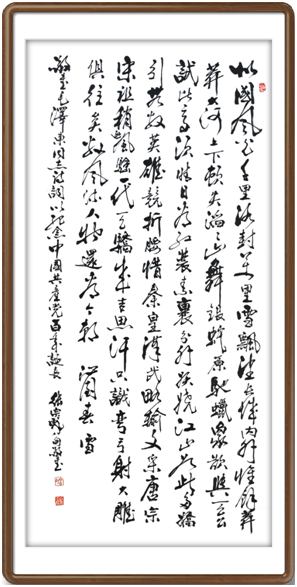 北國風光千里冰封萬里雪飄望長城內外惟餘莽
莽大河上下頓失滔滔山舞銀蛇原馳蠟象欲與天公
試比高須晴日看紅裝素裹分外妖嬈江山如此多嬌
引無數英雄競折腰惜秦皇漢武略輸文采唐宗
宋祖稍遜風騷一代天驕成吉思汗只識彎弓射大雕
俱往矣數風流人物還看今朝 沁園春 雪
敬書毛澤東同志詩詞以紀念中國共產党百年誕辰 敬書